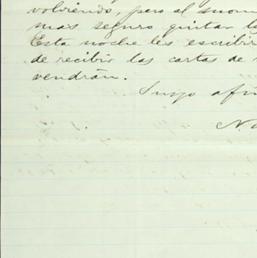 volviendo, pero al
mas seguro quitar
Esta noche les escribir
de recibir las cartas de
vendrán.
Suyo afm
N.